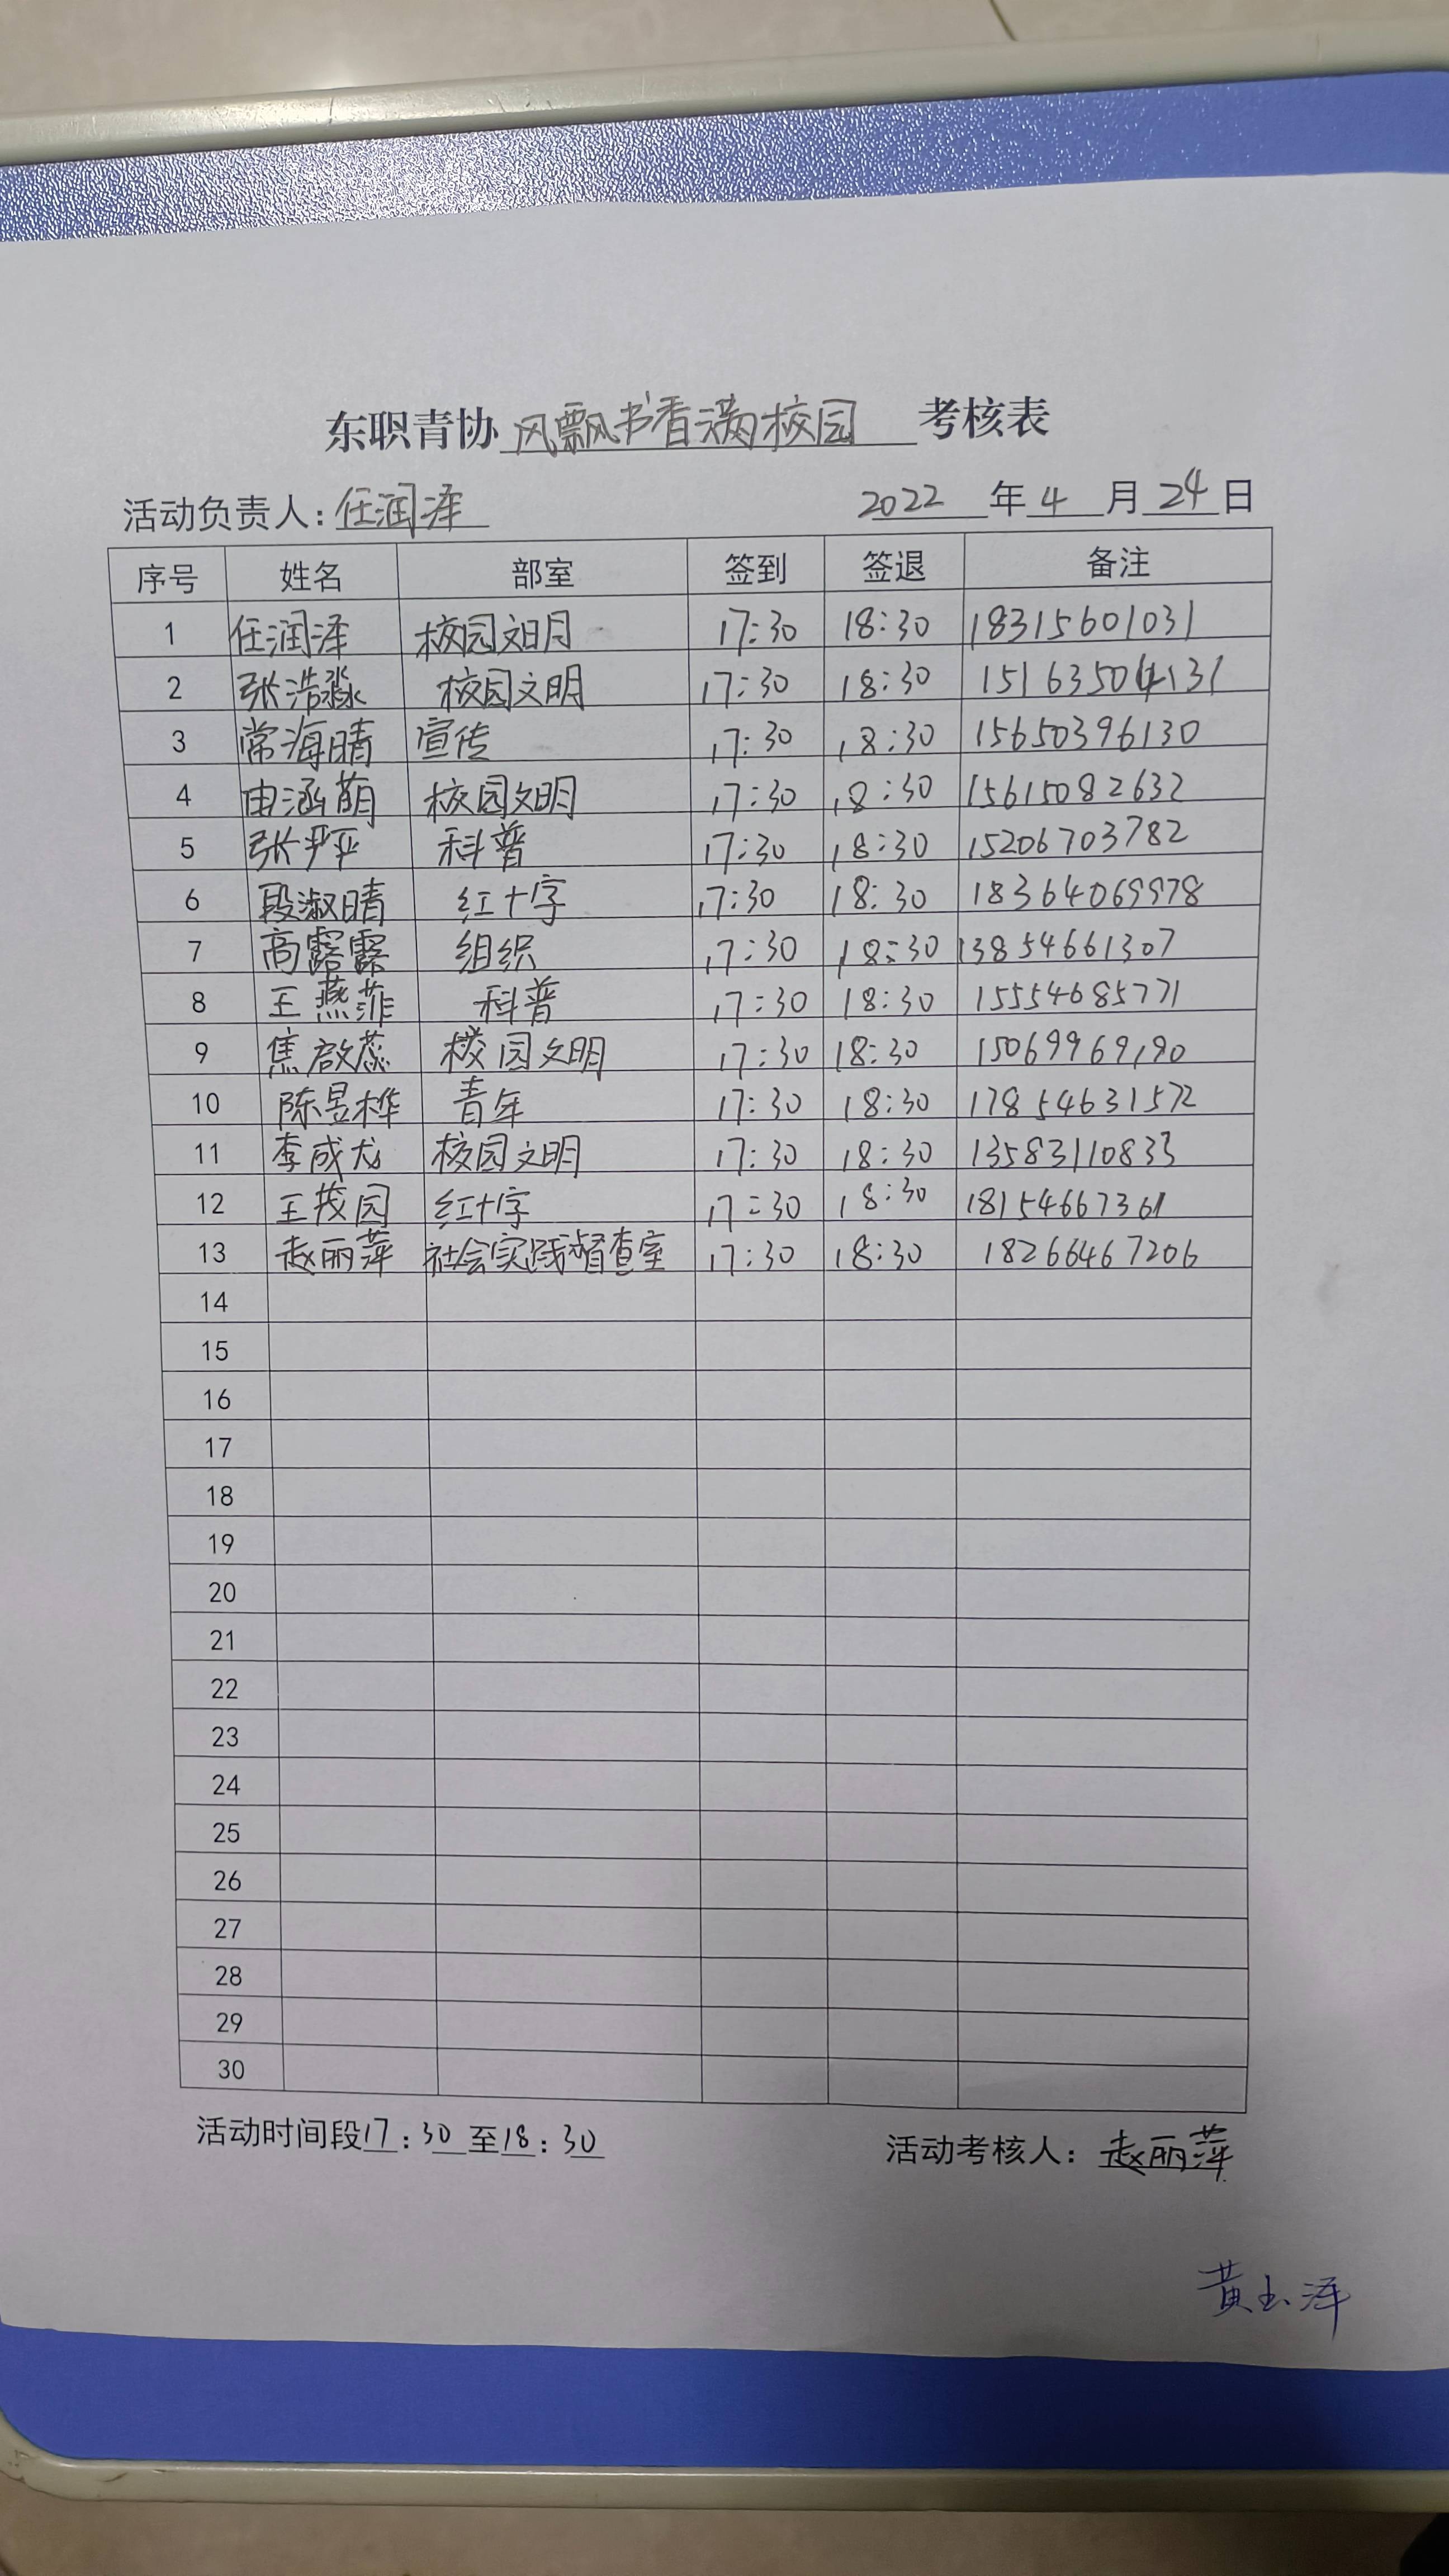 东职青协 风飘书香满校园 考核表
活动负责人：任润泽 2022 年 4 月 24 日
序号 姓名 部室 签到 签退 备注
1 任润泽 校园文明 17:30 18:30 18315601031
2 张浩淼 校园文明 17:30 18:30 15163504131
3 常海晴 宣传 17:30 18:30 15650396130
4 由涵萌 校园文明 17:30 18:30 15615082632
5 张严严 科普 17:30 18:30 15206703782
6 段淑晴 红十字 17:30 18:30 18364069978
7 高露露 组织 17:30 18:30 13854661307
8 王燕菲 科普 17:30 18:30 15554685771
9 焦启蕊 校园文明 17:30 18:30 15069969190
10 陈昱桦 青年 17:30 18:30 17854631572
11 李成龙 校园文明 17:30 18:30 13583110833
12 王茂园 红十字 17:30 18:30 18154667361
13 赵丽萍 社会实践督查室 17:30 18:30 18266467206
14
15
16
17
18
19
20
21
22
23
24
25
26
27
28
29
30
活动时间段17:30至18:30 活动考核人：赵丽萍
黄玉泽